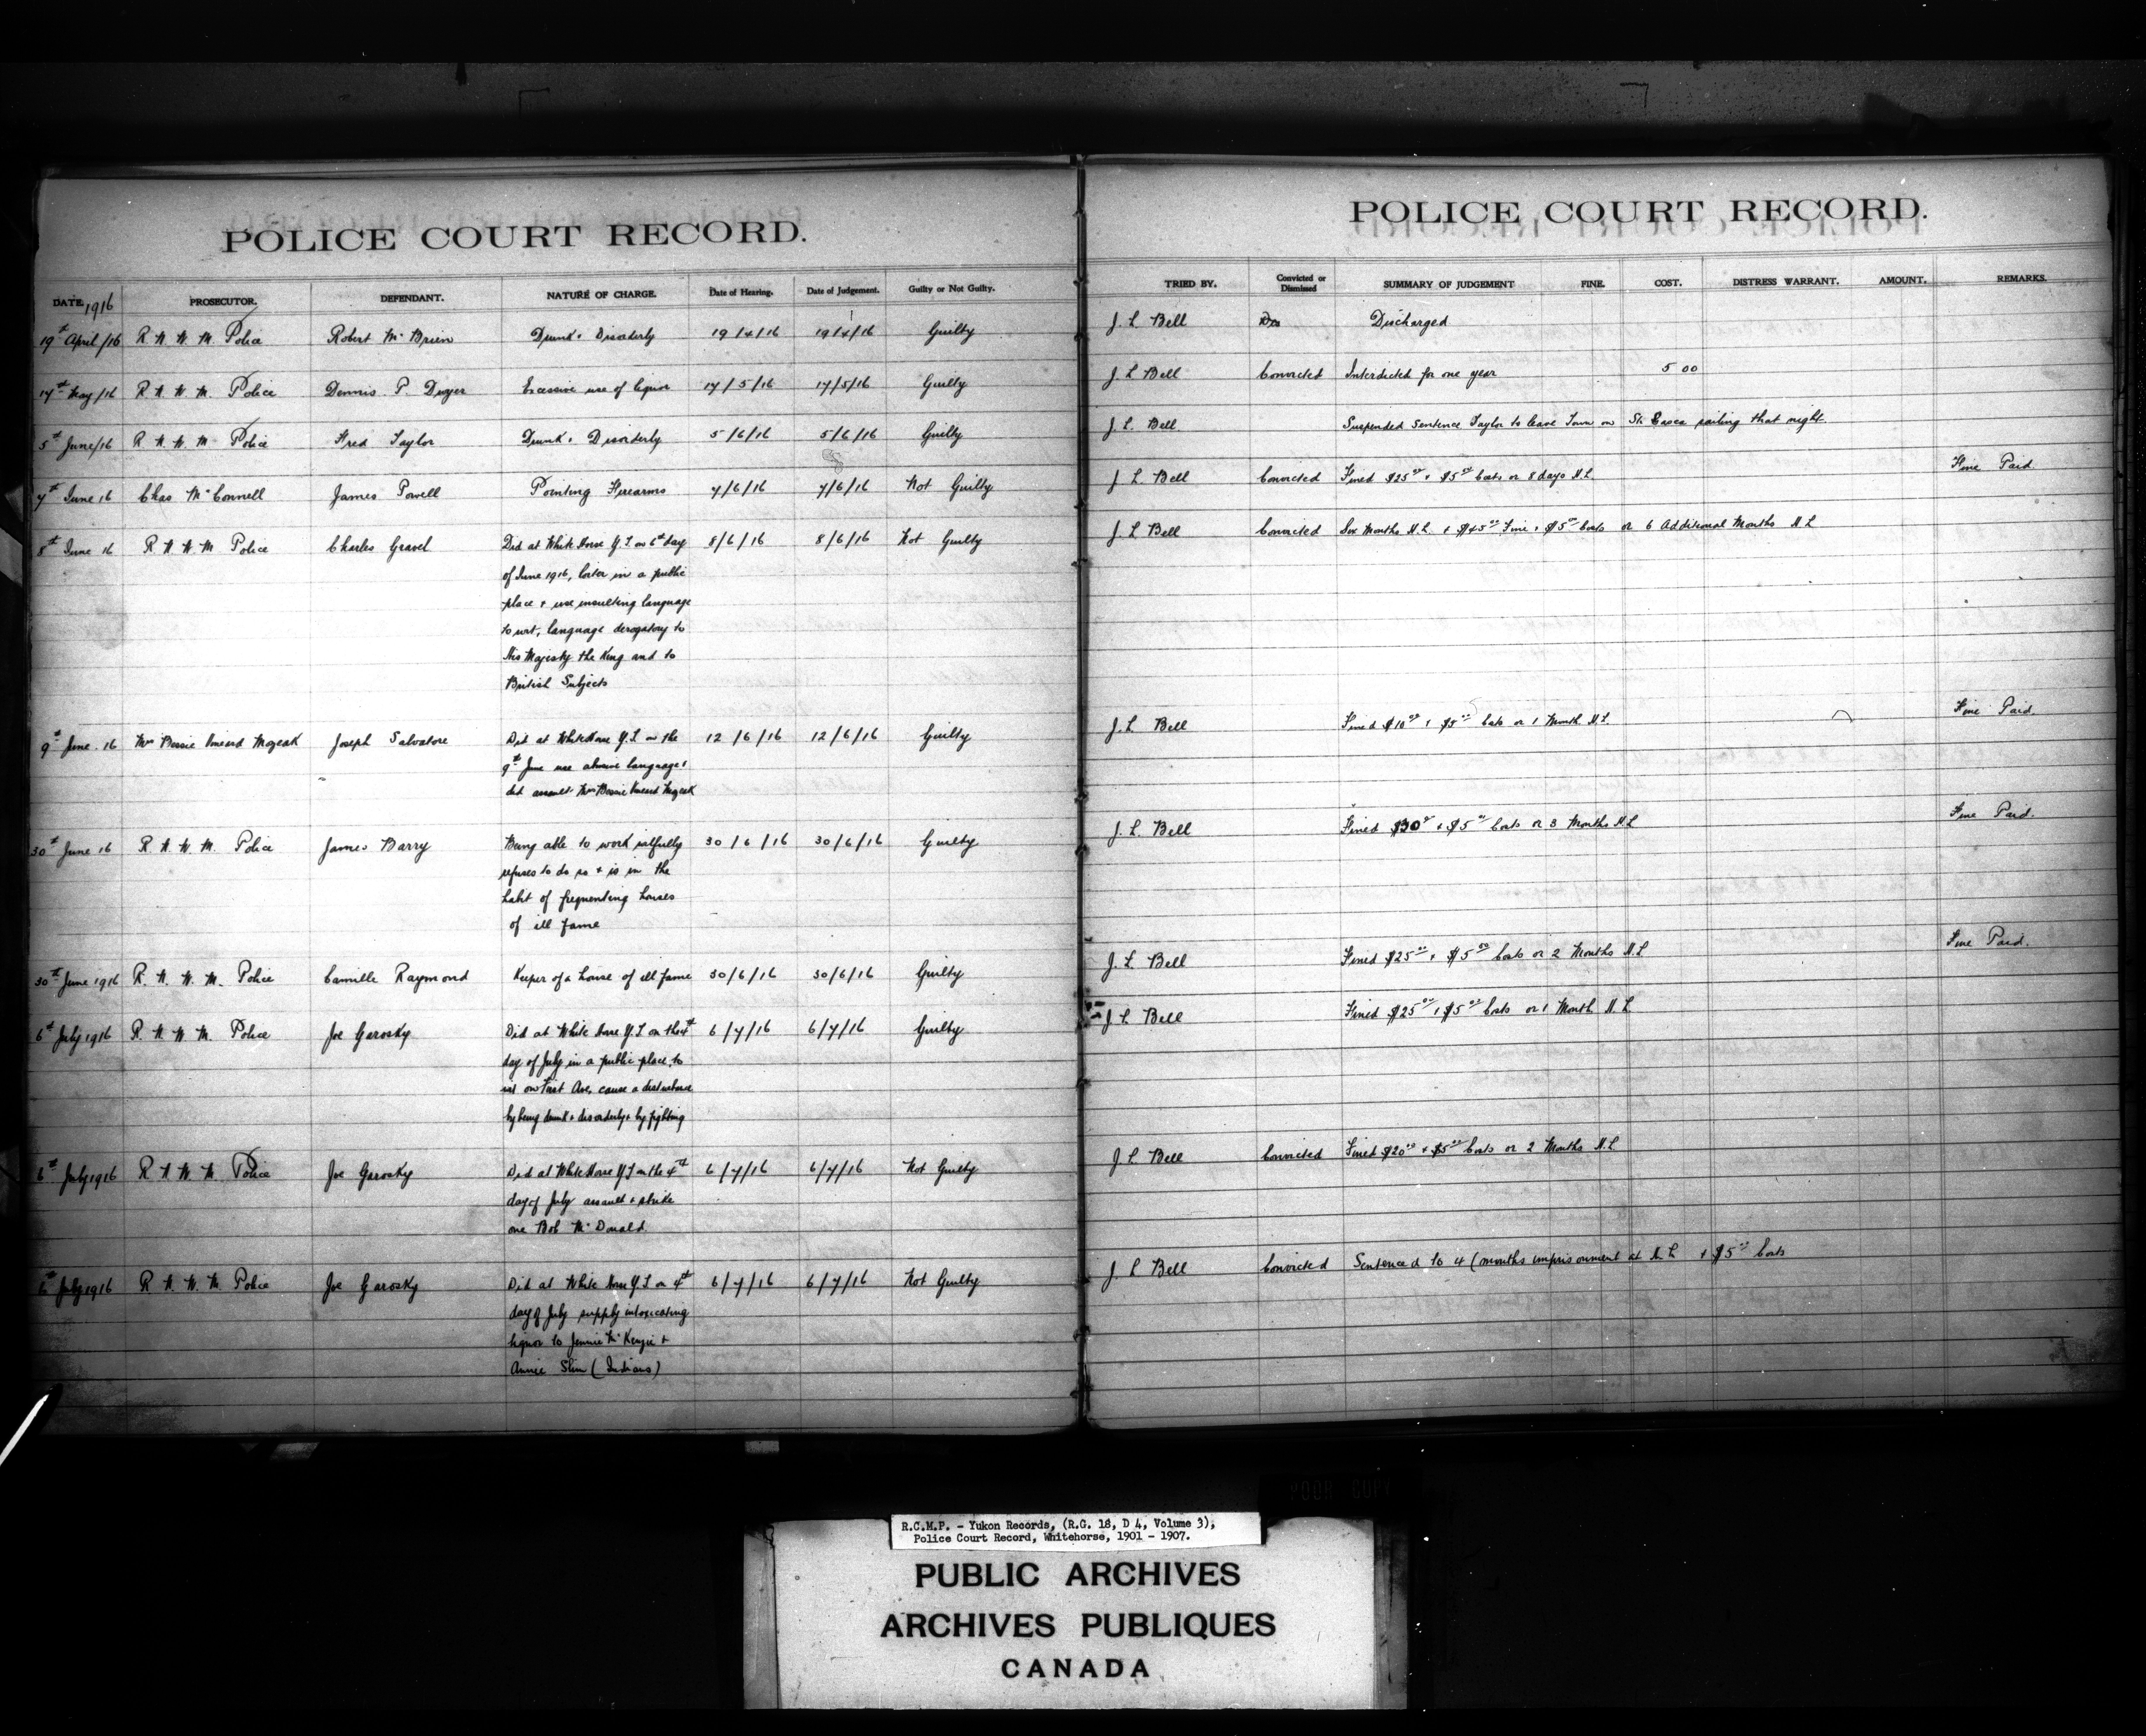 POLICE COURT RECORD.
DATE 1916 PROSECUTOR. DEFENDANT. NATURE OF CHARGE. Date of Hearing. Date of Judgement. Guilty or Not Guilty.
19th April/16 R N W M Police Robert McBrien Drunk + Disorderly 19/4/16 19/4/16 Guilty
17th May/16 R N W M. Police Dennis P. Dwyer Excessive use of liquor 17/5/16 17/5/16 Guilty
5th June/16 R N W M Police Fred Taylor Drunk + Disorderly 5/6/16 5/6/16 Guilty
7th June 16 Chas McConnell James Powell Pointing Firearms 7/6/16 7/6/16 Not Guilty
8th June 16 R N W M Police Charles Gravel Did at White Horse Y.T. on 6th day 8/6/16 8/6/16 Not Guilty
of June 1916, loiter in a public
place + use insulting language
to wit, language derogatory to
His Majesty the King and to
British Subjects
9th June. 16 Mrs Bessie Joseph Salvatore Did at WhiteHorse Y.T. on the 12/6/16 12/6/16 Guilty
9th June use abusive language +
did assault Mrs Bessie
30th June 16 R. N. W. M. Police James Barry Being able to work wilfully 30/6/16 30/6/16 Guilty
refuses to do so + is in the
habit of frequenting houses
of ill fame
30th June 1916 R. N. W. M. Police Camille Raymond Keeper of a house of ill fame 30/6/16 30/6/16 Guilty
6th July 1916 R. N. W. M. Police Joe Garosky Did at White Horse Y.T. on the 4th 6/7/16 6/7/16 Guilty
day of July in a public place, to
wit on First Ave, cause a disturbance
by being drunk + disorderly + by fighting
6th July 1916 R N W M Police Joe Garosky Did at White Horse Y.T. on the 4th 6/7/16 6/7/16 Not Guilty
day of July assault + strike
one Bob McDonald
6th July 1916 R N. W. M. Police Joe Garosky Did at White Horse Y.T. on 4th 6/7/16 6/7/16 Not Guilty
day of July supply intoxicating
liquor to Jennie McKenzie +
Annie Slim (Indians)
POLICE COURT RECORD.
TRIED BY. Convicted or Dismissed SUMMARY OF JUDGEMENT FINE. COST. DISTRESS WARRANT. AMOUNT. REMARKS.
J. L Bell Discharged
J L Bell Convicted Interdicted for one year 5 00
J. L. Bell Suspended Sentence Taylor to leave Town on Str Casca sailing that night
J L Bell Convicted Fined $25.00 + $5.00 Costs or 8 days H.L. Fine Paid
J L Bell Convicted Six Months H.L. + $45.00 Fine + $5.00 Costs or 6 Additional Months H L
J. L Bell Fined $10.00 + $5.00 Costs or 1 Month H.L. Fine Paid.
J. L. Bell Fined $30.00 + $5.00 Costs or 3 Months H L Fine Paid.
J. L. Bell Fined $25.00 + $5.00 Costs or 2 Months H.L Fine Paid.
J L Bell Fined $25.00 + $5.00 Costs or 1 Month H. L
J L Bell Convicted Fined $20.00 + $5.00 Costs or 2 Months H.L
J. L Bell Convicted Sentenced to 4 (months imprisonment at H. L + $5.00 Costs
R.C.M.P. - Yukon Records, (R.G. 18, D 4, Volume 3),
Police Court Record, Whitehorse, 1901 - 1907.
PUBLIC ARCHIVES
ARCHIVES PUBLIQUES
CANADA